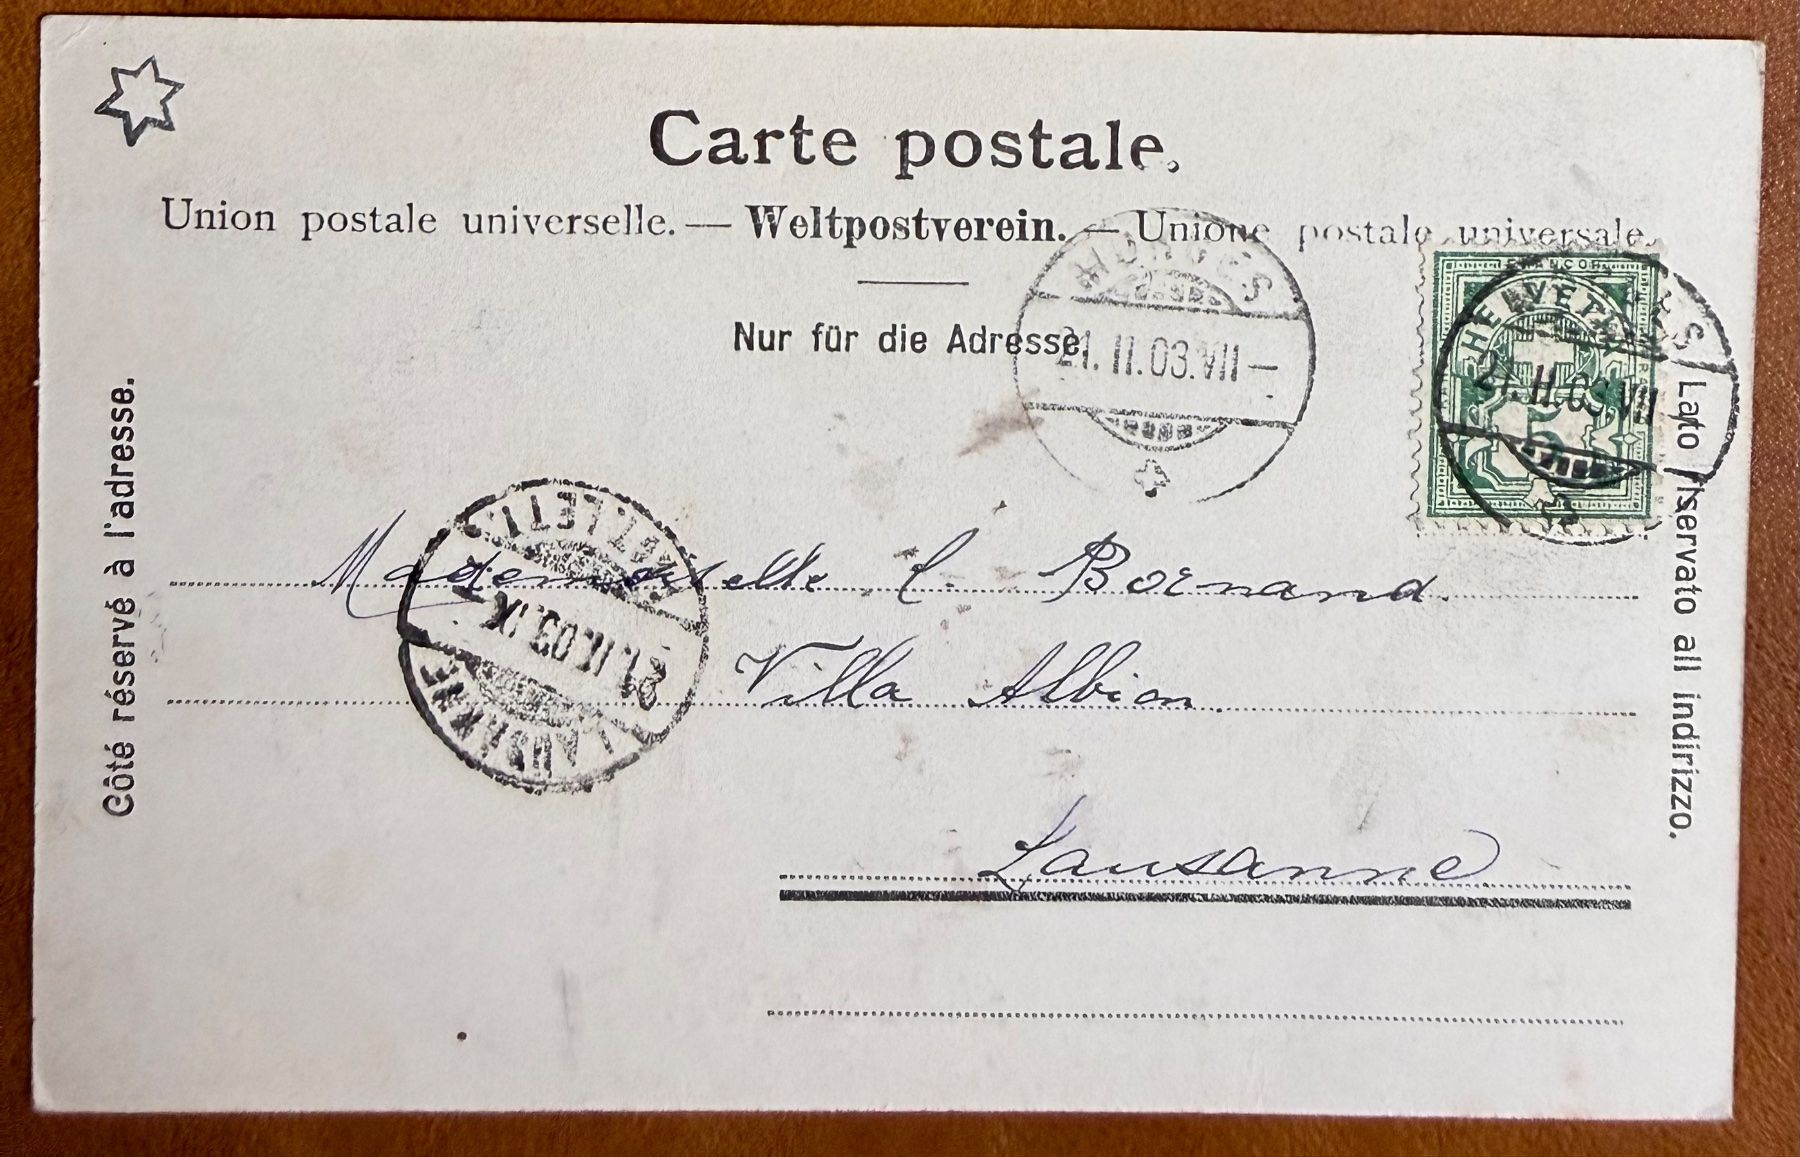 Carte postale.
Union postale universelle. — Weltpostverein. — Unione postale universale.
Nur für die Adresse.
Côté réservé à l'adresse.
Lato riservato all indirizzo.
MORGES
21. II. 03. VII —
FRANCO
HELVETIA
5
21. II. 03. VII
LAUSANNE
21. II. 03. IX
Mademoiselle C. Bornand.
Villa Albion.
Lausanne